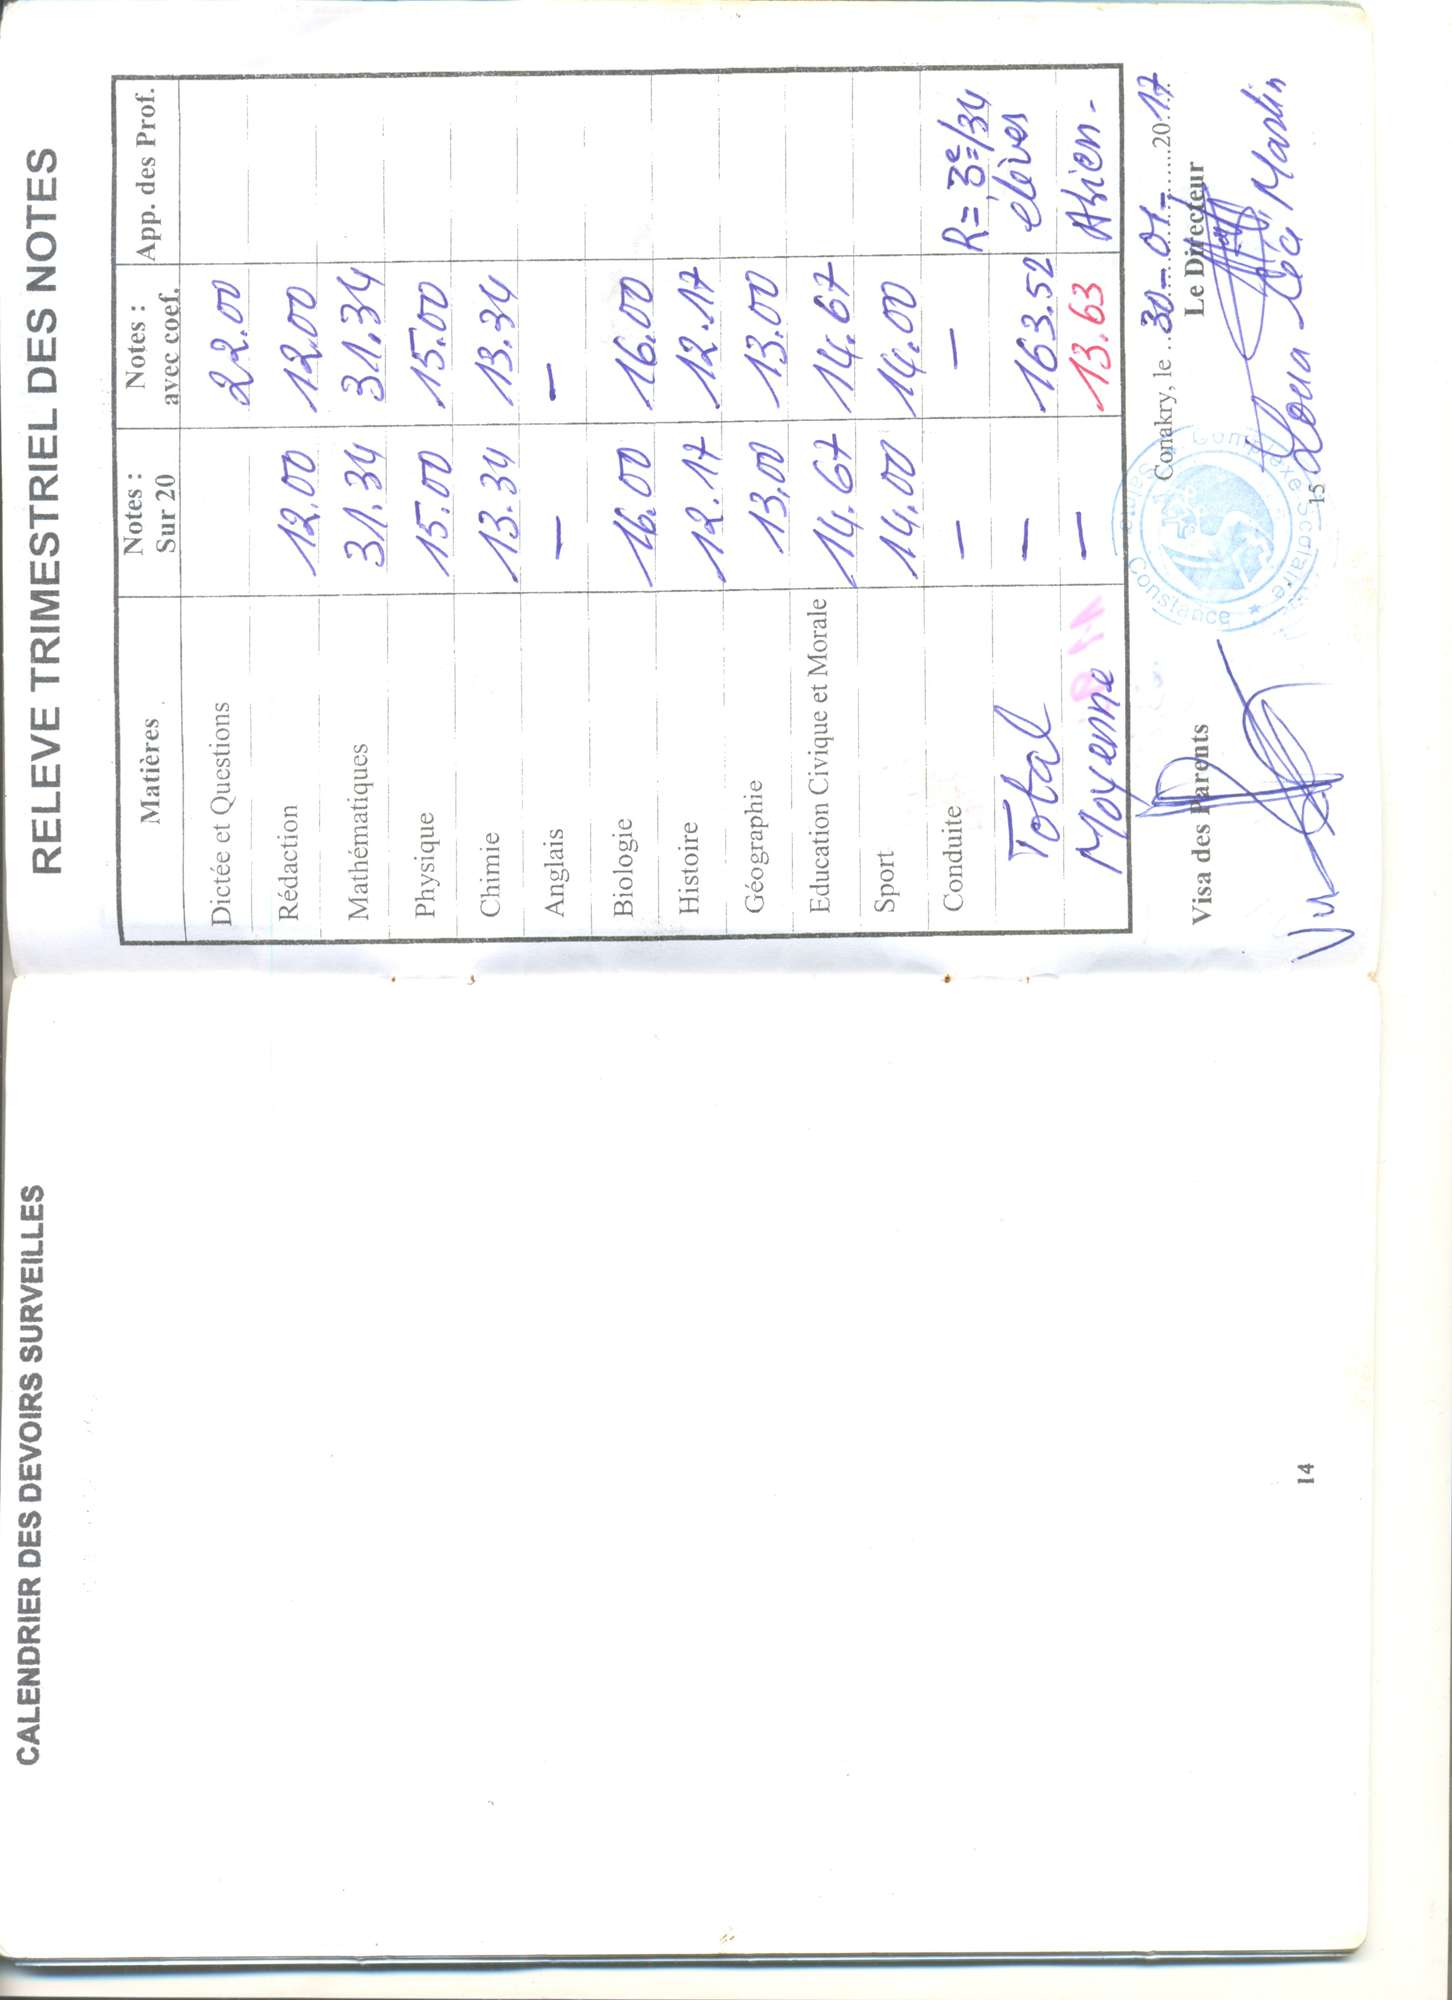 CALENDRIER DES DEVOIRS SURVEILLES
14
RELEVE TRIMESTRIEL DES NOTES
Matières Notes : Sur 20 Notes : avec coef. App. des Prof.
Dictée et Questions 22.00
Rédaction 12.00 12.00
Mathématiques 31.34 31.34
Physique 15.00 15.00
Chimie 13.34 13.34
Anglais — —
Biologie 16.00 16.00
Histoire 12.17 12.17
Géographie 13.00 13.00
Education Civique et Morale 14.67 14.67
Sport 14.00 14.00
Conduite — — R = 3e/34
Total — 163.52 élèves
Moyenne — 13.63 Abien.
Conakry, le ..30-01-....2017
Visa des Parents Le Directeur
Vu
Complexe Scolaire
Constance
15
Loua Martin